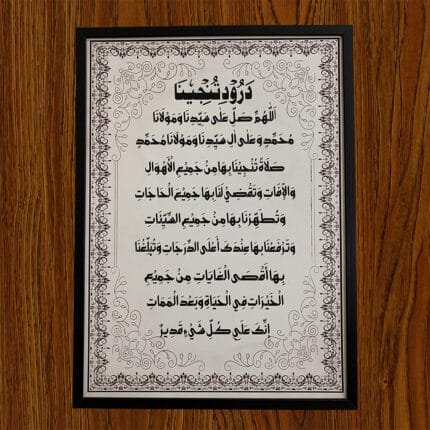 دَرُوْدِ تُنَجِّيْنَا
اَللّٰهُمَّ صَلِّ عَلٰى سَيِّدِنَا وَمَوْلَانَا
مُحَمَّدٍ وَعَلٰى اٰلِ سَيِّدِنَا وَمَوْلَانَا مُحَمَّدٍ
صَلَاةً تُنْجِيْنَا بِهَا مِنْ جَمِيْعِ الْاَهْوَالِ
وَالْاٰفَاتِ وَتَقْضِيْ لَنَا بِهَا جَمِيْعَ الْحَاجَاتِ
وَتُطَهِّرُنَا بِهَا مِنْ جَمِيْعِ السَّيِّئَاتِ
وَتَرْفَعُنَا بِهَا عِنْدَكَ اَعْلَى الدَّرَجَاتِ وَتُبَلِّغُنَا
بِهَا اَقْصَى الْغَايَاتِ مِنْ جَمِيْعِ
الْخَيْرَاتِ فِي الْحَيَاةِ وَبَعْدَ الْمَمَاتِ
اِنَّكَ عَلٰى كُلِّ شَيْءٍ قَدِيْرٌ